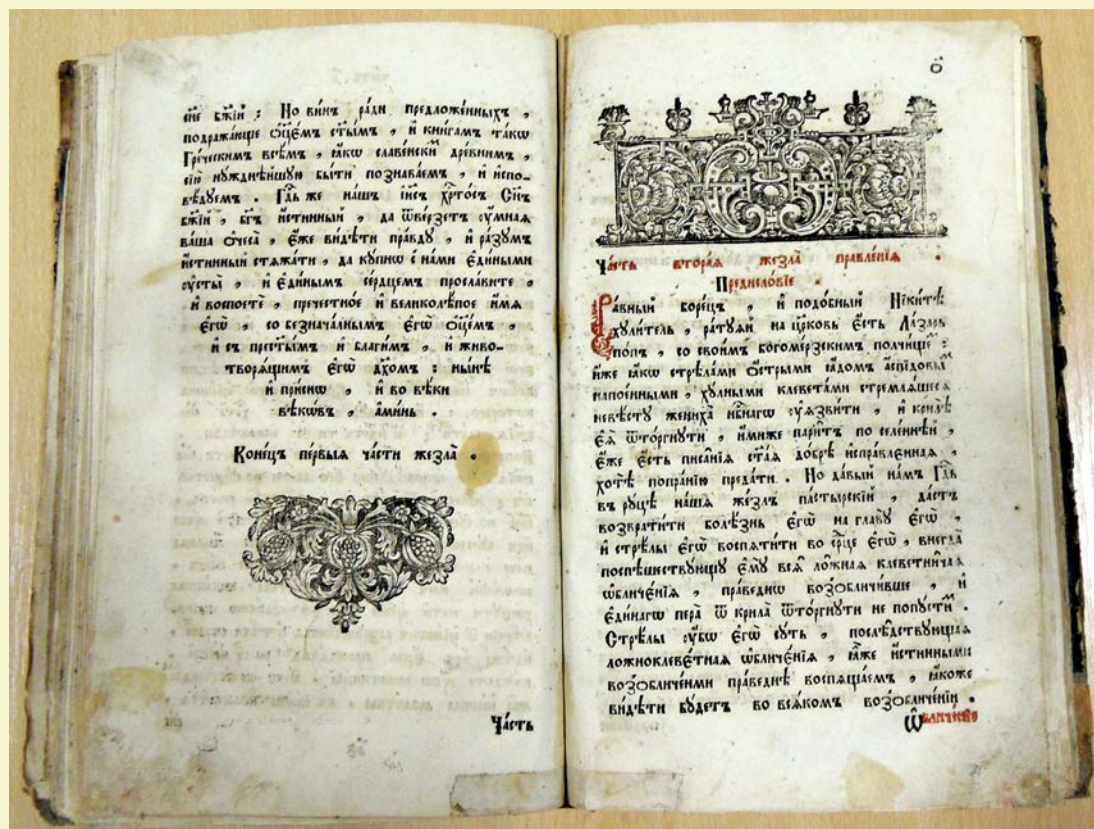 сїе бж҃їи : Но вин̾ъ ра́ди предложе́нныхъ ,
подража́юще ѻ҆ц҃е́мъ ст҃ы́мъ , и҆ кни́гамъ та́кѡ
Гре́ческимъ всѣ̑мъ , ꙗ҆́кѡ славе́нски̑мъ дре́внимъ ,
сїю̀ нꙋжднѣ́йшꙋю бы́ти познава́емъ , и҆ и҆спо-
вѣ́дꙋемъ . Гд҇ь же на́шъ і҆и҃съ хр҇то́съ Сн҃ъ
бж҃їи , бг҃ъ и҆́стинный , да ѿве́рзетъ ᲂу҆́мнаѧ
ва́ша ѻ҆чеса̀ , є҆́же ви́дѣти пра́вдꙋ , и҆ ра́зꙋмъ
и҆́стинный стѧжа́ти , да кꙋ́пнѡ с̾ на́ми є҆ди́ными
ᲂу҆сты̀ , и҆ є҆ди́нымъ се́рдцемъ просла́вите ,
и҆ воспое́те , пречестно́е и҆ великолѣ́пое и҆́мѧ
є҆гѡ̀ , со безнача́лнымъ є҆гѡ̀ ѻ҆ц҃е́мъ ,
и҆ съ прест҃ы́мъ и҆ благи́мъ , и҆ живо-
творѧ́щимъ є҆гѡ̀ дх҃омъ : ны́нѣ
и҆ при́снѡ , и҆ во вѣ́ки
вѣкѡ́въ , а҆ми́нь .
Коне́цъ пе́рвыѧ ча́сти жезла̀ .
Ча́сть
ѻ҃
Ча́сть втора́ѧ жезла̀ правле́нїѧ .
Предисло́вїе .
Ра́вный боре́цъ , и҆ подо́бный Ники́тѣ
хꙋли́тель , ратꙋ́ѧй на цр҃ковь є҆́сть Ла́зарь
по́пъ , со свои́мъ богоме́рзскимъ полчище :
и҆̀же ꙗ҆́кѡ стрѣла́ми ѻ҆́стрыми ꙗ҆́домъ а҆спі́довыⷨ
напое́нными , хꙋ́лными клевета́ми стремлѧ́шесѧ
невѣ́стꙋ жениха̀ нб҇наго ᲂу҆ѧзви́ти , и҆ крилѣ̀
є҆ѧ̀ ѿто́ргнꙋти , и҆́миже пари́тъ по селе́ннѣй ,
є҆́же є҆́сть писа̑нїѧ ст҃а́ѧ до́брѣ и҆спра́вленнаѧ ,
хотѣ̀ попра́нїю преда́ти . Но да́вый на́мъ Гд҇ь
въ рꙋ́цѣ на́шѧ же́злъ па́стырскїй , да́стъ
возврати́ти болѣ́знь є҆гѡ̀ на главꙋ̀ є҆гѡ̀ ,
и҆ стрѣ́лы є҆гѡ̀ воспѧти́ти во ср҃це є҆гѡ̀ , внегда̀
поспѣ́шествꙋющꙋ є҆мꙋ̀ всѧ̑ ло́жнаѧ клеветни́чаѧ
ѡ҆бличє́нїѧ , пра́веднѡ возѻбличи́вше , и҆
є҆ди́нагѡ пера̀ ѿ крила̀ ѿто́ргнꙋти не попꙋ́стиⷨ .
Стрѣ́лы ᲂу҆́бѡ є҆гѡ̀ сꙋ́ть , послѣ́дствꙋющаѧ
ложноклеве́тнаѧ ѡ҆бличє́нїѧ , ꙗ҆̀же и҆́стинными
возѻбличе́ньми пра́веднѣ воспѧща́емъ , ꙗ҆́коже
ви́дѣти бꙋ́детъ во всѧ́комъ возѻбличе́нїи .
Ѡ҆бличе́нїе